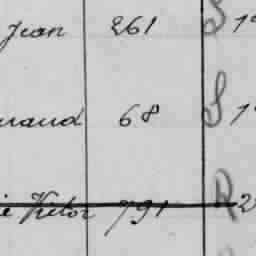 Jean 261 S 1
raud 68 S 1
ie Victor 791 R 2